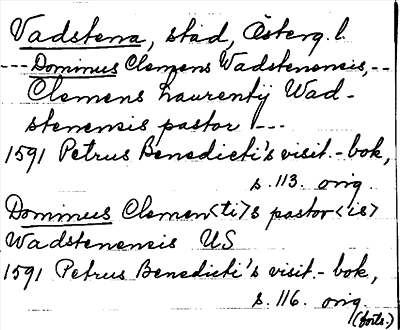 Vadstena, stad, Österg. l.
--- Dominus Clemens Wadstenensis, --
Clemens Laurentij Wad-
stenensis pastor ---
1591 Petrus Benedicti's visit.-bok,
s. 113. orig.
Dominus Clemen<ti>s pastor<is>
Wadstenensis US
1591 Petrus Benedicti's visit.-bok,
s. 116. orig.
(forts.)